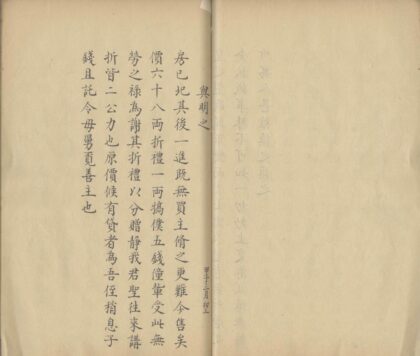 與明之
房已圯其後一進既無買主脩之更難今售矣
價六十八兩折禮一兩犒僕五錢僮輩受此無
勞之祿為謝其折禮以分贈靜我君聖往來講
折皆二公力也原價候有貸者為吾侄稍息子
錢且託令母舅覓善主也